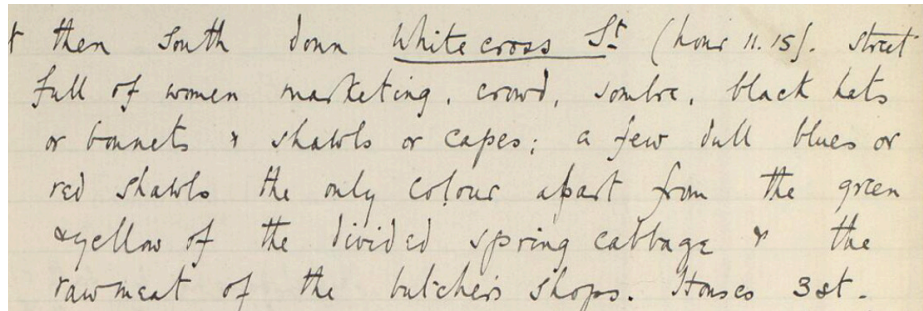 then South down Whitecross St (hour 11.15). street
full of women marketing, crowd, sombre, black hats
or bonnets & shawls or capes; a few dull blues or
red shawls the only colour apart from the green
& yellow of the divided spring cabbage & the
raw meat of the butchers shops. Houses 3 st.